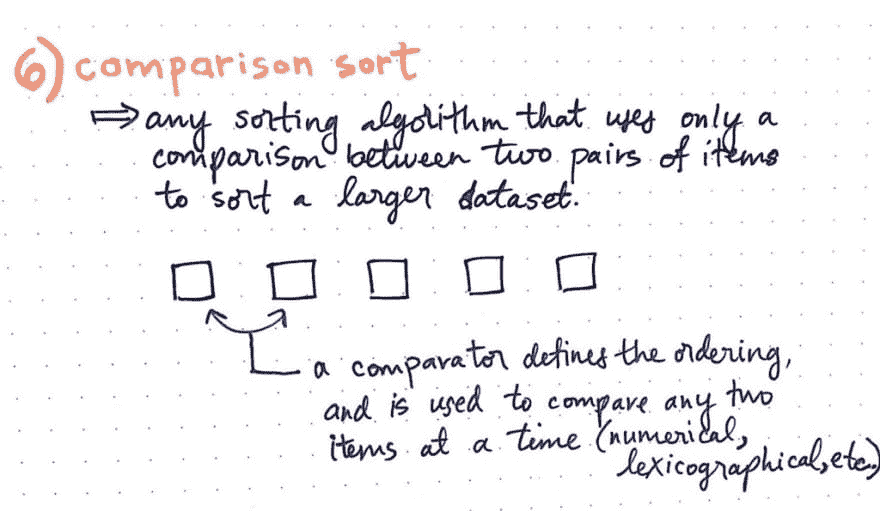 6) comparison sort
⇒ any sorting algorithm that uses only a
comparison between two pairs of items
to sort a larger dataset.
a comparator defines the ordering,
and is used to compare any two
items at a time (numerical,
lexicographical, etc.)